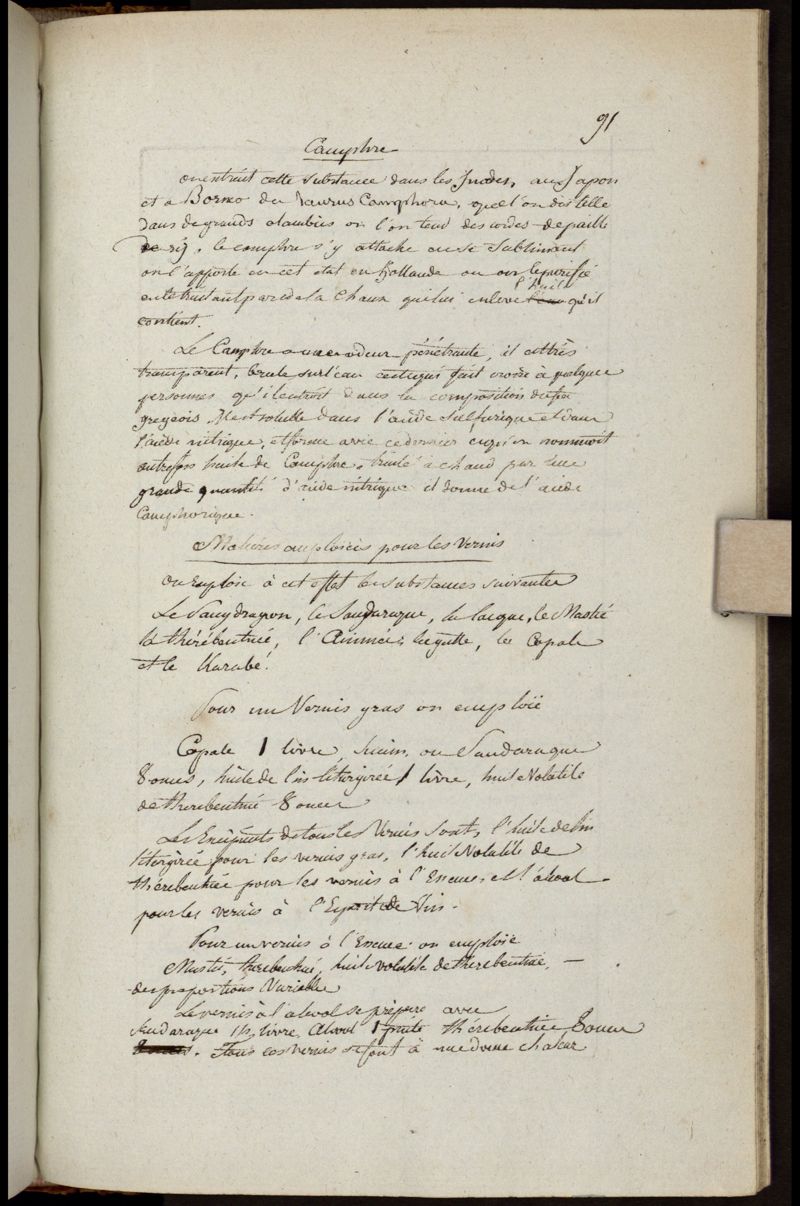 91
Camphre
on extrait cette substance dans les Indes, au Japon
et a Borneo du Laurus Camphora, que l'on distille
dans de grands alambics ou l'on tend des cordes de paille
de riz, le camphre s'y attache en se sublimant
on l'apporte en cet etat en hollande ou on le purifie
en le traitant par de la chaux qui lui enleve l'huile qu'il
contient.
Le Camphre a une odeur pénétrante, il est très
transparent, brule sur l'eau ce qui fait croire à quelques
personnes qu'il entroit dans la composition du feu
gregeois. Il est soluble dans l'acide sulfurique et dans
l'acide nitrique, et forme avec ce dernier ce qu'on nommoit
autrefois huile de Camphre, traité à chaud par une
grande quantité d'acide nitrique il donne de l'acide
Camphorique.
Matières employées pour les Vernis
on Emploie à cet effet les substances suivantes
Le Sangdragon, le Sandaraque, la lacque, le Mastic
la thérébentine, l'Animée, la gutte, la Copale
et le Karabé.
Pour un Vernis gras on emploïe
Copale 1 livre, succin, ou Sandaraque
8 onces, huile de lin litargirée 1 livre, huile Volatile
de therebentine 8 onces
Les Excipients de tous les Vernis sont, l'huile de lin
litargirée pour les vernis gras, l'huile Volatile de
thérebentine pour les vernis à l'Essence, et l'alcool
pour les vernis à l'Esprit de Vin.
Pour un vernis à l'Essence on emploie
Mastic, therebentine, huile volatile de therebentine,
des proportions Variables
Le vernis à l'alcool se prépare avec
Sandaraque 1/2 livre, Alcool 1 pinte therebentine 8 onces
Tous ces vernis se font à une douce chaleur